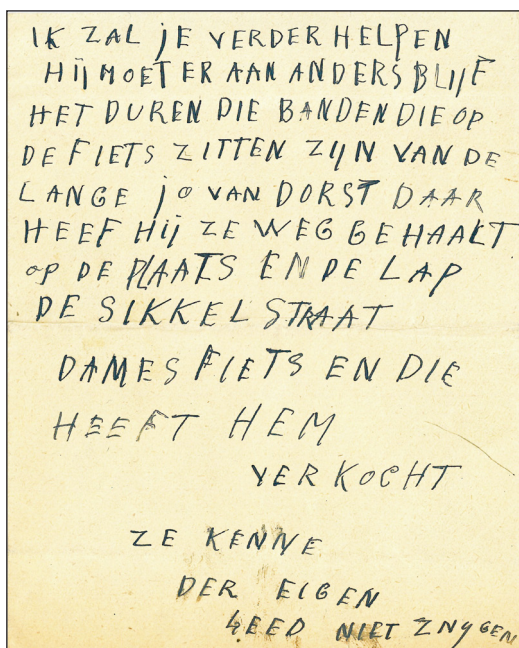 IK ZAL jE VERDER HELPEN
Hij MOET ER AAN ANDERS BLijF
HET DUREN DIE BANDEN DIE OP
DE FIETS ZITTEN ZijN VAN DE
LANGE jO VAN DORST DAAR
HEEF Hij ZE WEG GEHAALT
OP DE PLAATS EN DE LAP
DE SIKKELSTRAAT
DAMES FIETS EN DIE
HEEFT HEM
VERKOCHT
ZE KENNE
DER EIGEN
LEED NIET ZNYGEN